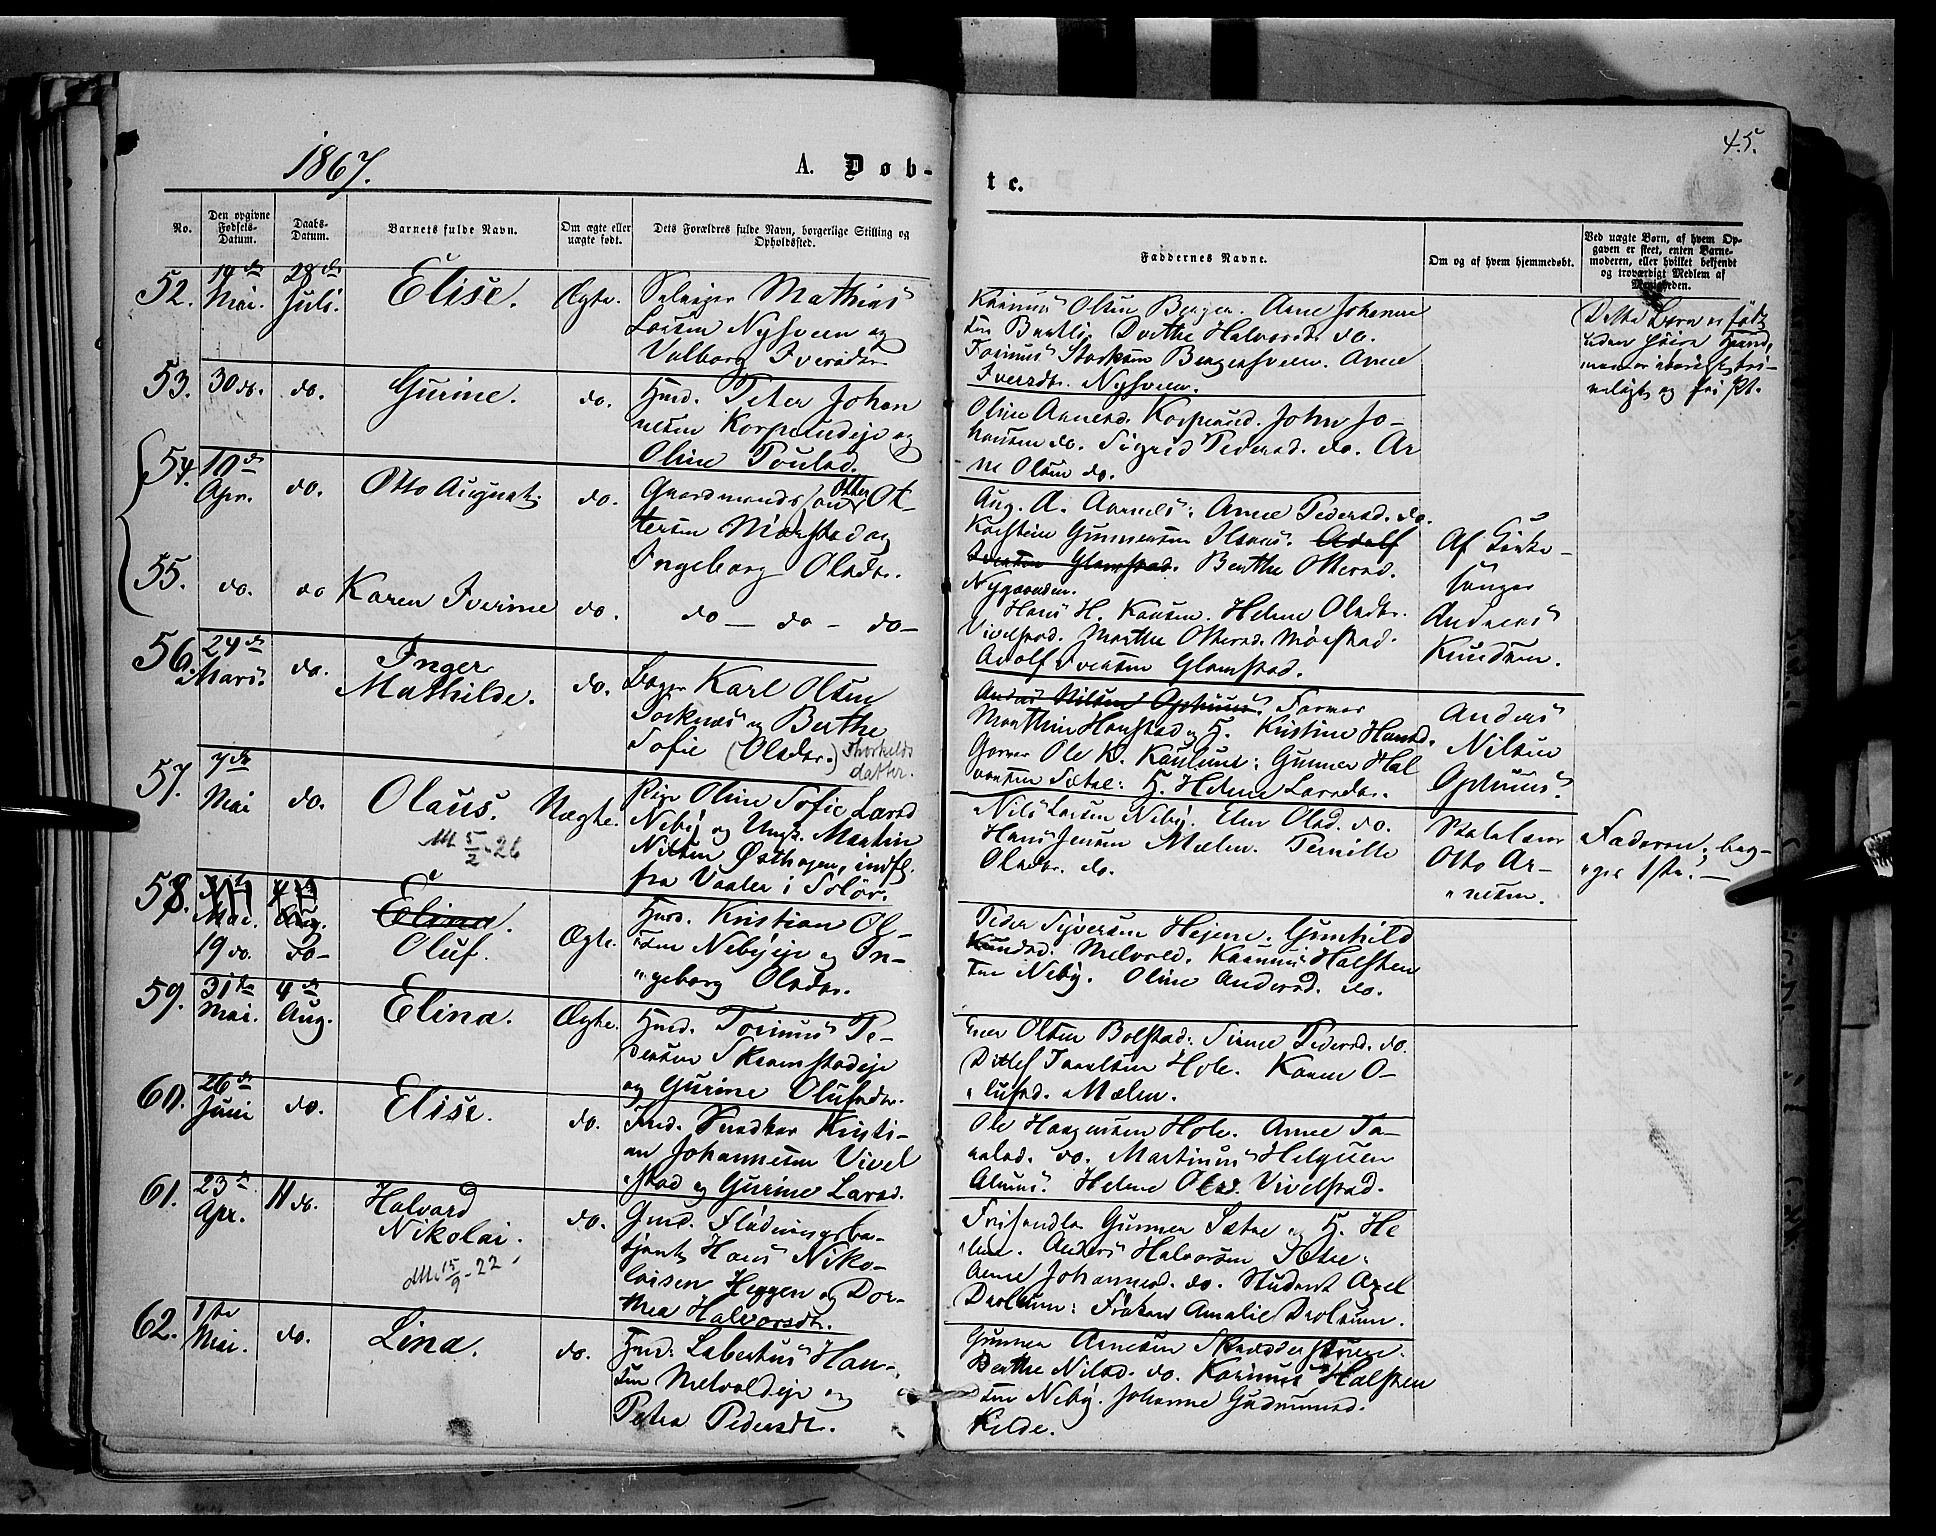 1867.
A. Døb-
te.
45.
No.
Den opgivne
Fødsels-
Datum.
Daabs-
Datum.
Barnets fulde Navn.
Om ægte eller
uægte født.
Dets Forældres fulde Navn, borgerlige Stilling og
Opholdssted.
Faddernes Navne.
Om og af hvem hjemmedøbt.
Ved uægte Børn, af hvem Op-
gaven er skeet, enten Barne-
moderen, eller hvilket bekjendt
og troværdigt Medlem af
Menigheden.
52.
14de
Mai.
28de
Juli.
Elise.
Ægte.
Mathias
Larsen Nysveen og
Valborg Iversdtr.
Olsen Bergen. Anne Johanne
Dorthe Halvorsd. do.
Bergersveen. Anne
Iversdtr. Nysveen.
Dette Barn er født
uden høire Haand,
53.
30 do.
do.
Gurine.
do.
Husd. Peter Johan
nesen Korprudeje og
Oline Poulsd.
Oline Arnesd. Korprud. John Jo-
hansen do. Sigrid Pedersd. do. Ar
ne Olsen do.
54.
19de
Apr.
do.
Otto August.
do.
Gaardmands søn Otter Ot-
tersen Mørstad og
Ingeborg Olsdtr.
Aug. A. Aarnes. Anne Pedersd. do.
Karstein Gunnersen Adolf
Iversen Glæmstad. Berthe Ottersd.
Nygaarden.
Af Kirke-
sanger
Andreas
Knudsen.
55.
do.
do
Karen Iverine
do.
do — do — do —
Hans H. Kausen. Helene Olsdtr.
Vivelstad. Marthe Ottersd. Mørstad.
Adolf Iversen Glæmstad.
56.
24de
Mars.
do.
Inger
Mathilde.
do.
Bager Karl Olsen
Torknæs og Berthe
Sofie (Olsdtr.) Thorkelds
datter.
Anders Nilsen Ophuus. Farver
Marthin Haustad og H. Kristine Hansd.
Garver Ole K. Kaulum: Gunner Hal
vorsen Sætre: H. Helene Larsdtr.
Anders
Nilsen
Ophuus.
57.
7de
Mai
do.
Olaus.
M 5/2-26
Uægte.
Pige Oline Sofie Larsd
Neby og Ungk. Martin
Nilsen Østhagen, indfl.
fra Vaaler i Solør.
Nils Larsen Neby. Elen Olsd. do.
Hans Jensen Mælen. Pernille
Olsdtr. do.
Otto Ar-
nesen.
Faderen; beg-
ges 1ste. —
58.
Mai.
Aug.
Elina.
19 do.
do-
Oluf.
Ægte.
Husd. Kristian Ol-
sen Nebyeje og In-
geborg Olsdtr.
Peder Syversen Hejene. Gunhild
Knudsd. Melvold. Rasmus Halsten
sen Neby. Oline Andersd. do.
59.
31te
Mai.
4de
Aug.
Elina.
Ægte.
Husd. Torinus Pe-
dersen Skramstadeje
og Gurine Olufsdtr.
Olsen Bolstad. Sirene Pedersd. do.
Ditlef Hole. Karen O-
lufsd. Mælen.
60.
26de
Juni
do.
Elise.
do.
Ind. Snedker Kristi-
an Johannesen Vivel
stad og Gurine Larsd.
Ole Haagensen Hole. Anne
do. Martinus Helgesen
Alme. Helene Olsd. Vivelstad.
61.
23de
Apr.
11 do.
Halvard
Nikolai.
M. 15/9-22
do.
Gmd. Flødningsbe-
tjent Hans Niko-
laisen Heggen og Dor-
thea Halvorsdtr.
Frihandler Gunner Sætre og H. He
lene. Anders Halvorsen Sætre.
Anne Johannesd. do. Student Axel
Drolsum: Frøken Amalie Drolsum.
62.
1ste
Mai.
do.
Lina.
do.
Husd. Labertus Han-
sen Melvoldeje og
Petra Pedersdt.
Gunner Arnesen
Berthe Nilsd. do. Karinus Halsten
sen Neby. Johanne Gudmunsd.
Kilde.